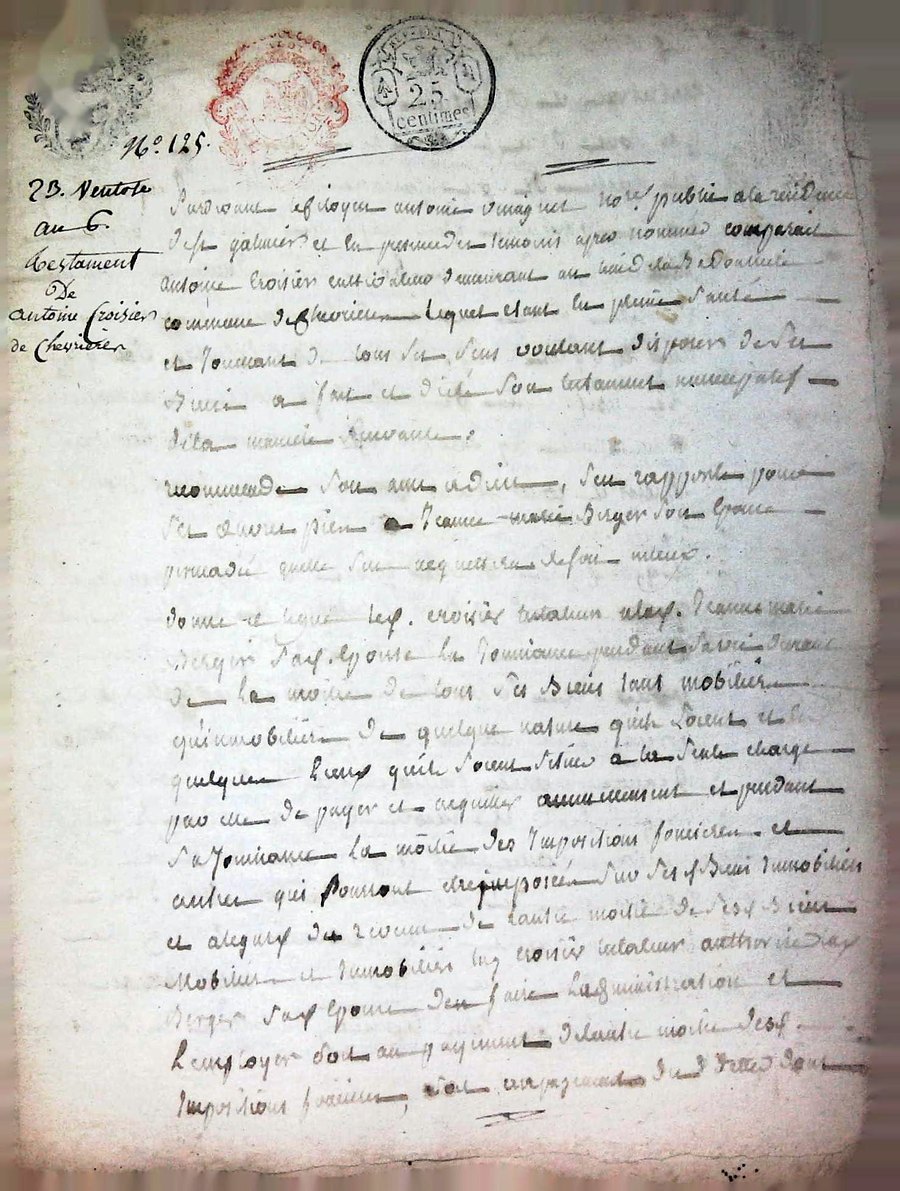 25
centimes
N.o 125.
23. Ventose
an 6
testament
De
antoine Croisier
de Chevrieres
Pardevant le Citoyen antoine not.re public a la residence
de st galmier et en presence des temoins apres nommés comparait
antoine Croisier cultivateur demeurant au
commune de Chevrieres lequel etant en pleine santé
et Jouissant de tous ses sens voulant disposer de ses
Biens a fait et dicté son testament nuncupatif
de la maniere suivante.
recommande son ame a dieu, s'en rapporte pour
ses œuvres pies a Jeanne marie Berger son Epouse
persuadé quelle s'en
donne et legue led. croisier testateur a lad. Jeanne marie
Berger sad. Epouse la Jouissance pendant sa vie durant
de la moitié de tous ses Biens tant mobiliers
qu'immobiliers de quelque nature quils soient et en
quelques Lieux quils soient situés a la seule charge
par elle de payer et acquitter annuellement et pendant
sa Jouissance La moitié des Impositions foncieres et
autres qui Pourront etre imposées sur sesd. Biens Immobiliers
et a legard du revenu de l'autre moitié de sesd. Biens
Mobiliers et Immobiliers led. croisier testateur authorise lad.
Berger sad. Epouse d'en faire L'administration et
L'employer soit au payement de l'autre moitié desd.
Impositions foncieres, soit au payement des dettes dont